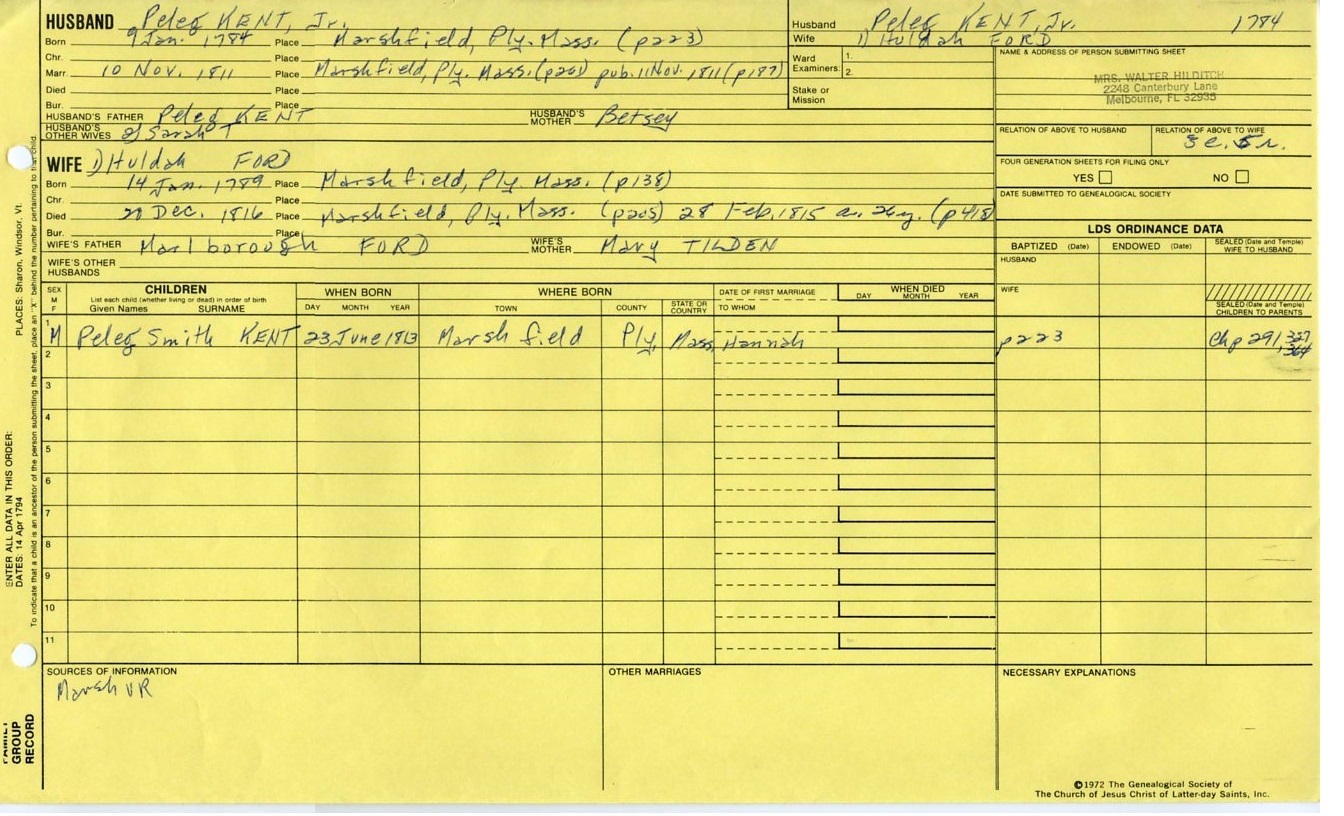 HUSBAND Peleg KENT, Jr.
Born 9 Jan. 1784 Place Marshfield, Ply. Mass. (p223)
Chr. Place
Marr. 10 Nov. 1811 Place Marshfield, Ply. Mass. (p205) pub. 11 Nov. 1811 (p187)
Died Place
Bur. Place
HUSBAND'S FATHER Peleg KENT HUSBAND'S MOTHER Betsey
HUSBAND'S OTHER WIVES 2) Sarah T
Husband Peleg KENT, Jr. 1784
Wife 1) Huldah FORD
Ward Examiners: 1.
2.
Stake or Mission
NAME & ADDRESS OF PERSON SUBMITTING SHEET
MRS. WALTER HILDITCH
2248 Canterbury Lane
Melbourne, FL 32935
RELATION OF ABOVE TO HUSBAND RELATION OF ABOVE TO WIFE
3c. 5r.
FOUR GENERATION SHEETS FOR FILING ONLY
YES NO
DATE SUBMITTED TO GENEALOGICAL SOCIETY
WIFE 1) Huldah FORD
Born 14 Jan. 1789 Place Marshfield, Ply. Mass. (p138)
Chr. Place
Died 20 Dec. 1816 Place Marshfield, Ply. Mass. (p205) 28 Feb, 1815 a. 26y. (p418)
Bur. Place
WIFE'S FATHER Marlborough FORD WIFE'S MOTHER Mary TILDEN
WIFE'S OTHER HUSBANDS
LDS ORDINANCE DATA
BAPTIZED (Date) ENDOWED (Date) SEALED (Date and Temple) WIFE TO HUSBAND
HUSBAND
WIFE
SEALED (Date and Temple) CHILDREN TO PARENTS
SEX M F
CHILDREN
List each child (whether living or dead) in order of birth
Given Names SURNAME
WHEN BORN
DAY MONTH YEAR
WHERE BORN
TOWN COUNTY STATE OR COUNTRY
DATE OF FIRST MARRIAGE
TO WHOM
WHEN DIED
DAY MONTH YEAR
1 M Peleg Smith KENT 23 June 1813 Marshfield Ply. Mass. Hannah p223 Chp 291, 327, 364
2
3
4
5
6
7
8
9
10
11
SOURCES OF INFORMATION
Marsh VR
OTHER MARRIAGES
NECESSARY EXPLANATIONS
©1972 The Genealogical Society of
The Church of Jesus Christ of Latter-day Saints, Inc.
ENTER ALL DATA IN THIS ORDER:
DATES: 14 Apr 1794
PLACES: Sharon, Windsor, Vt.
To indicate that a child is an ancestor of the person submitting the sheet, place an "X" behind the number pertaining to that child.
FAMILY
GROUP
RECORD